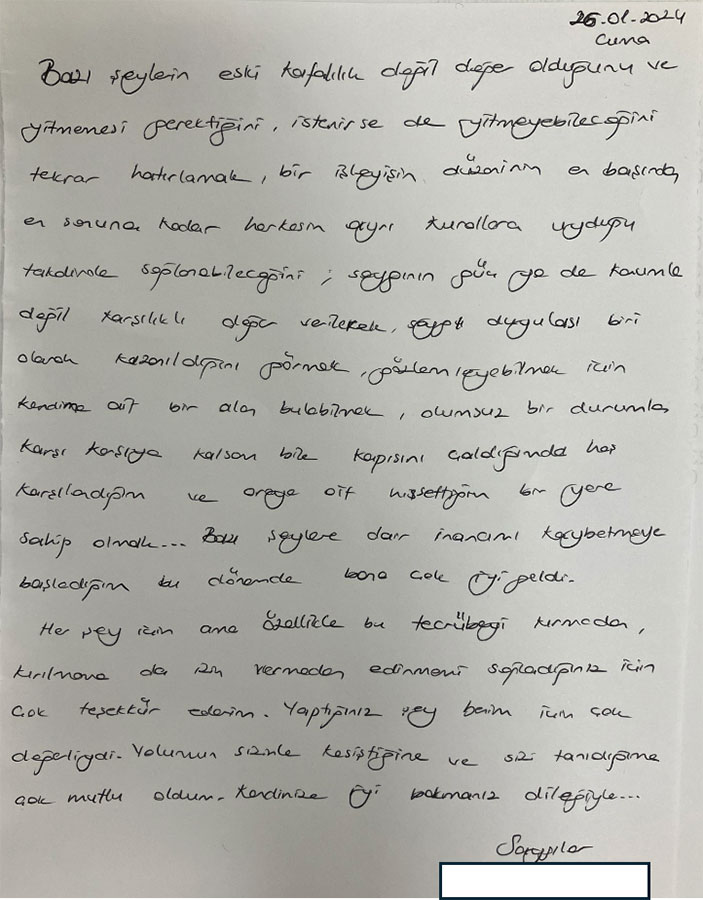 26.01.2024
Cuma
Bazı şeylerin eski kafalılık değil değer olduğunu ve
yitmemesi gerektiğini, istenirse de yitmeyebileceğini
tekrar hatırlamak, bir işleyişin düzeninin en başından
en sonuna kadar herkesin aynı kurallara uyduğu
takdirde sağlanabileceğini; saygının güç ya da kavimle
değil karşılıklı değer verilerek, saygı duyulası biri
olarak kazanıldığını görmek, gözlemleyebilmek için
kendime ait bir alan bulabilmek, olumsuz bir durumla
karşı karşıya kalsam bile kapısını çaldığımda hoş
karşılandığım ve oraya ait hissettiğim bir yere
sahip olmak... Bazı şeylere dair inancımı kaybetmeye
başladığım bu dönemde bana çok iyi geldi.
Her şey için ama özellikle bu tecrübeyi kırmadan,
kırılmama da izin vermeden edinmemi sağladığınız için
çok teşekkür ederim. Yaptığınız şey benim için çok
değerliydi. Yolumun sizinle kesiştiğine ve sizi tanıdığıma
çok mutlu oldum. Kendinize iyi bakmanız dileğiyle...
Saygılar